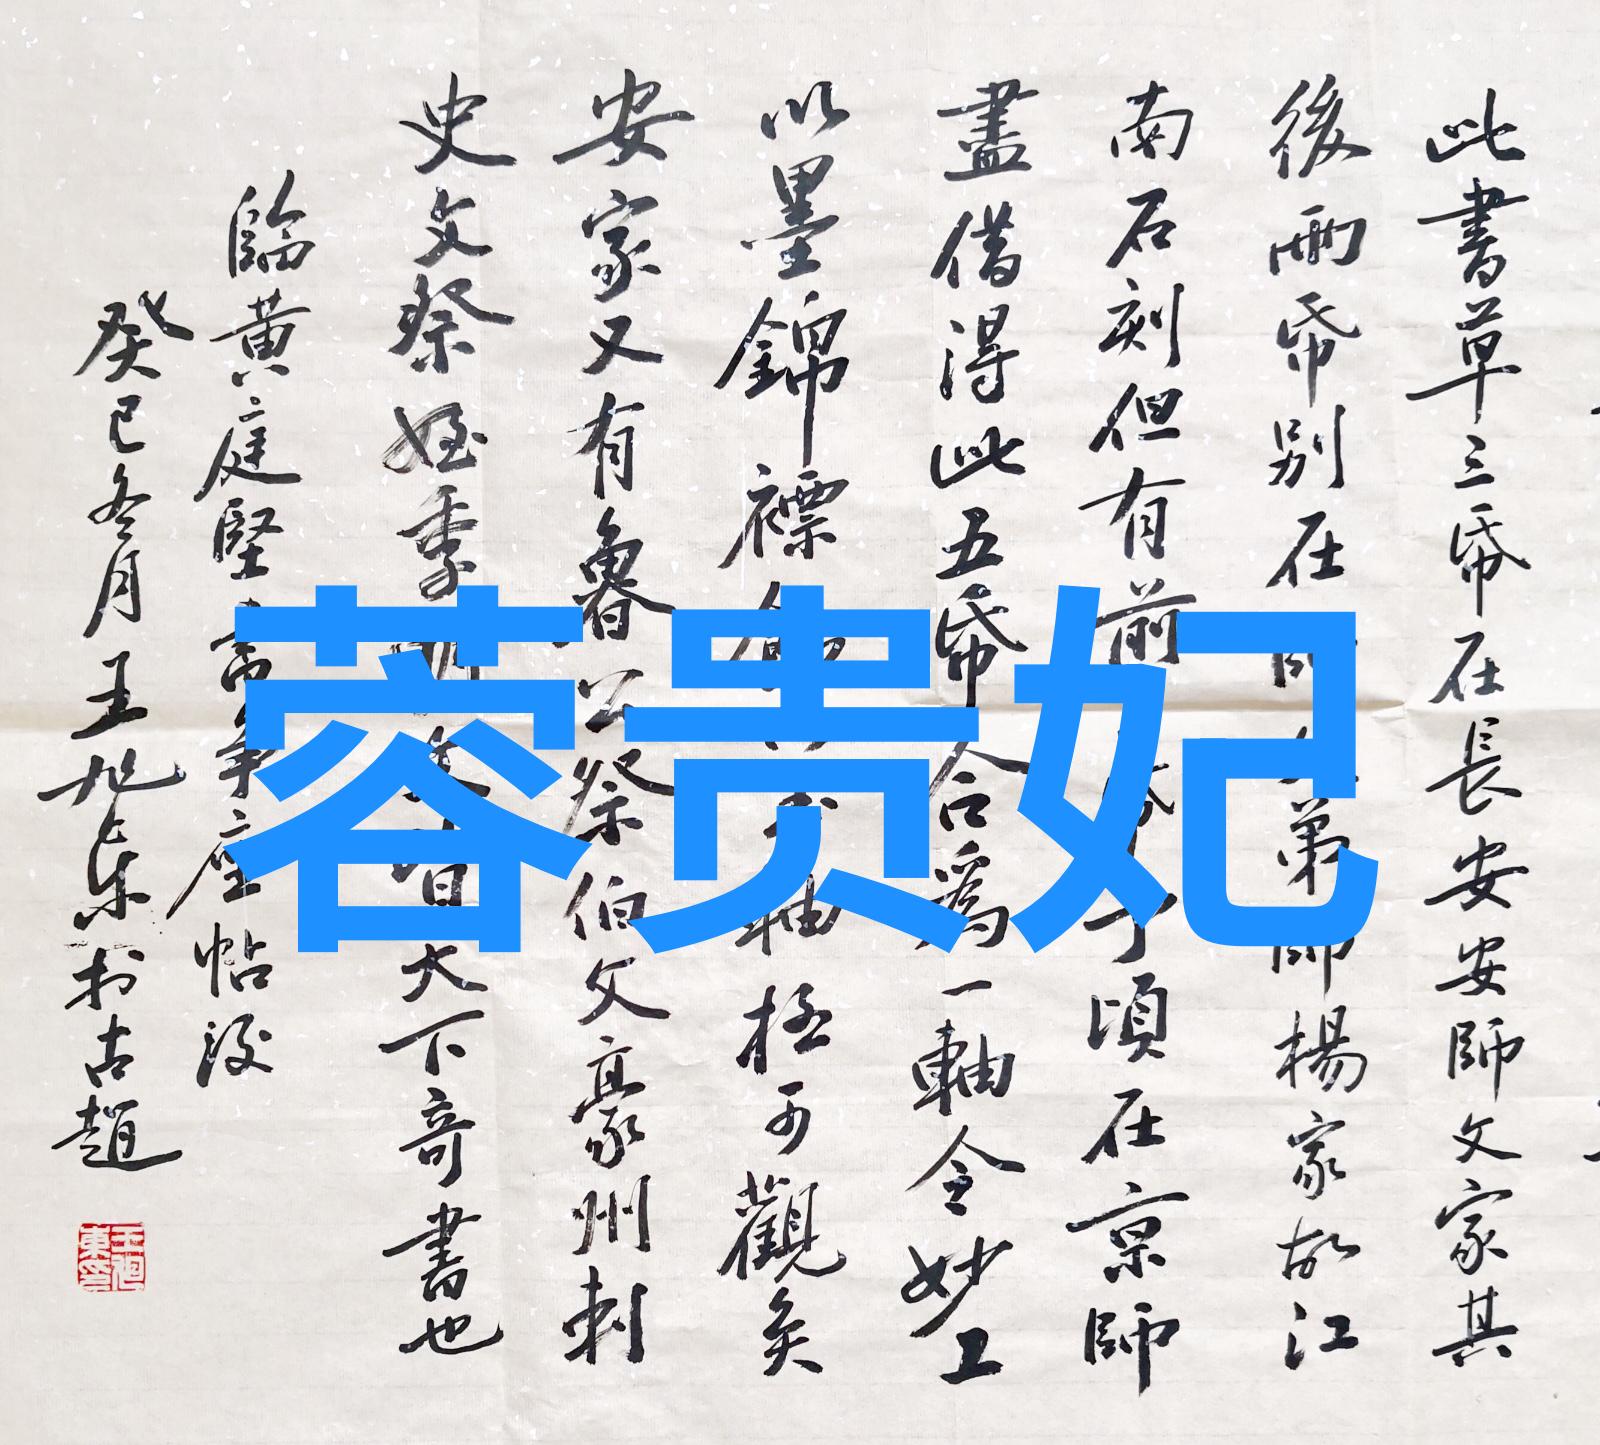 此書草三帋在長安安師文家其
後兩帋別在 弟師楊家故江
南石刻但有前 了頃在京師
盡借得此五帋合爲一軸令妙工
以墨錦褾 軸極可觀矣
安家又有魯公祭伯父豪州刺
史文祭姪季 文皆天下奇書也
臨黄庭堅書爭座帖後
癸巳冬月王旭東於古趙
蓉贵妃